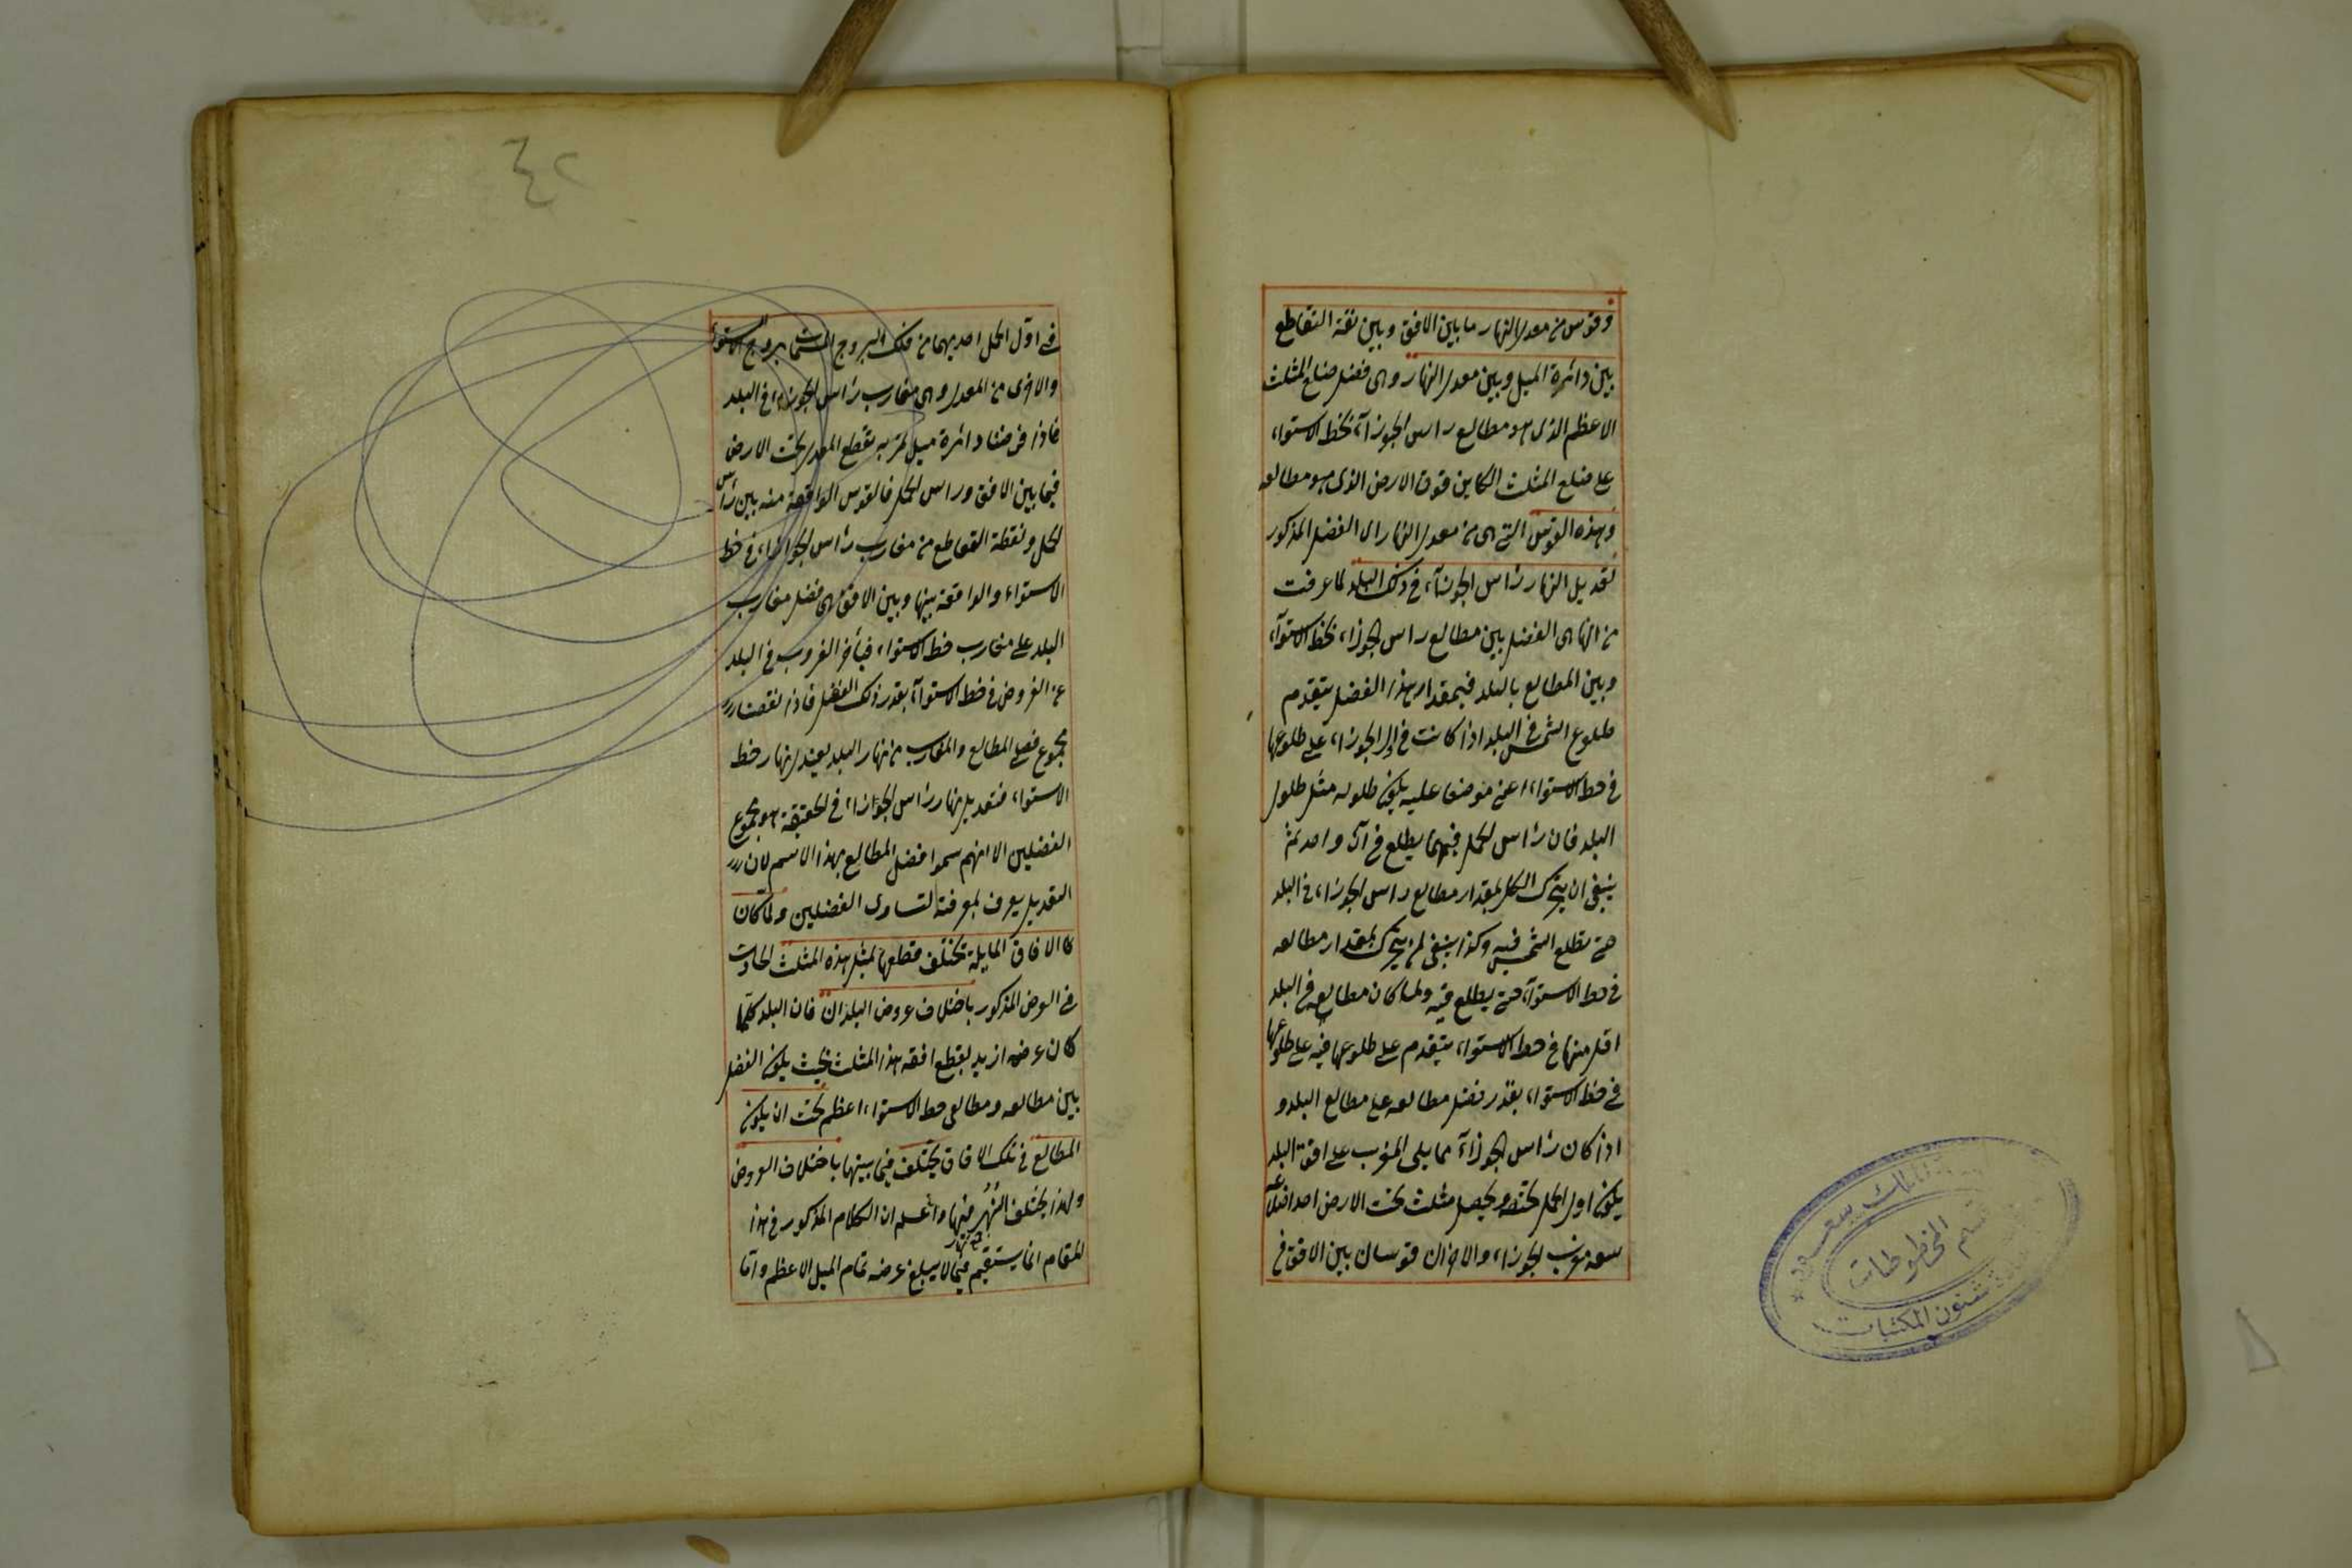 وقوس من معدل النهار ما بين الافق وبين نقطة التقاطع
بين دائرة الميل وبين معدل النهار وهى فضل ضلع المثلث
الاعظم الذى هو مطالع راس الجوزآء بخط الاستواء
على ضلع المثلث الكاين فوق الارض الذى هو مطالعه
وهذه القوس التى هى من معدل النهار اى الفضل المذكور
تعديل النهار راس الجوزآء فى ذلك البلد لما عرفت
من انها هى الفضل بين مطالع راس الجوزاء بخط الاستوآء
وبين المطالع بالبلد فبمقدار هذا الفضل يتقدم
طلوع الشمس فى البلد اذا كانت فى راس الجوزاء على طلوعها
فى خط الاستواء اعنى موضعا عليه يكون طوله مثل طول
البلد فان راس الحمل فيهما يطلع فى آن واحد ثم
ينبغى ان يتحرك الكل بمقدار مطالع راس الجوزاء فى البلد
حتى تطلع الشمس فيه وكذا ينبغى ان يتحرك بمقدار مطالعه
فى خط الاستوآء حتى يطلع فيه ولما كان مطالعه فى البلد
اقل منها فى خط الاستواء يتقدم على طلوعها فيه على طلوعها
فى خط الاستواء بقدر فضل مطالعه على مطالع البلد و
اذا كان راس الجوزآء مما يلى المغرب على افق البلد
يكون اول الحمل تحته ويحصل مثلث تحت الارض احد اضلاعه
سعة مغرب الجوزاء والاخران قوسان بين الافق فى
٤٢
فى اول الحمل احديهما من فلك البروج المسماة بروج الاستواء
والاخرى من المعدل وهى مغارب راس الجوزاء فى البلد
فاذا فرضنا دائرة ميل تمر به تقطع المعدل تحت الارض
فيما بين الافق وراس الحمل فالقوس الواقعة منه بين راس
الحمل ونقطة التقاطع من مغارب راس الجوزاء فى خط
الاستواء والواقعة بينها وبين الافق هى فضل مغارب
البلد على مغارب خط الاستواء فيتأخر الغروب فى البلد
عن الغروب فى خط الاستوآء بقدر ذلك الفضل فاذا نقصنا
مجموع فضلى المطالع والمغارب من نهار البلد يعتدل نهار خط
الاستواء فتعديل نهار راس الجوزاء فى الحقيقة هو مجموع
الفضلين الا انهم سموا فضل المطالع بهذا الاسم لان
التعديل يعرف بمعرفته لتساوى الفضلين ولما كان
كا الافاق المايلة تختلف قطعها لمثل هذه المثلث الحادث
فى العرض المذكور باختلاف عروض البلدان فان البلد كلما
كان عرضه ازيد يقطع افقه هذا المثلث بحيث يكون الفضل
بين مطالعه ومطالع خط الاستواء اعظم تحت ان يكون
المطالع فى تلك الافاق يختلف فيما بينها باختلاف العروض
ولهذا يختلف النهر فيها واعلم ان الكلام المذكور فى هذا
المقام انما يستقيم فيما لا يبلغ عرضه تمام الميل الاعظم واما
قسم المخطوطات
شئون المكتبات